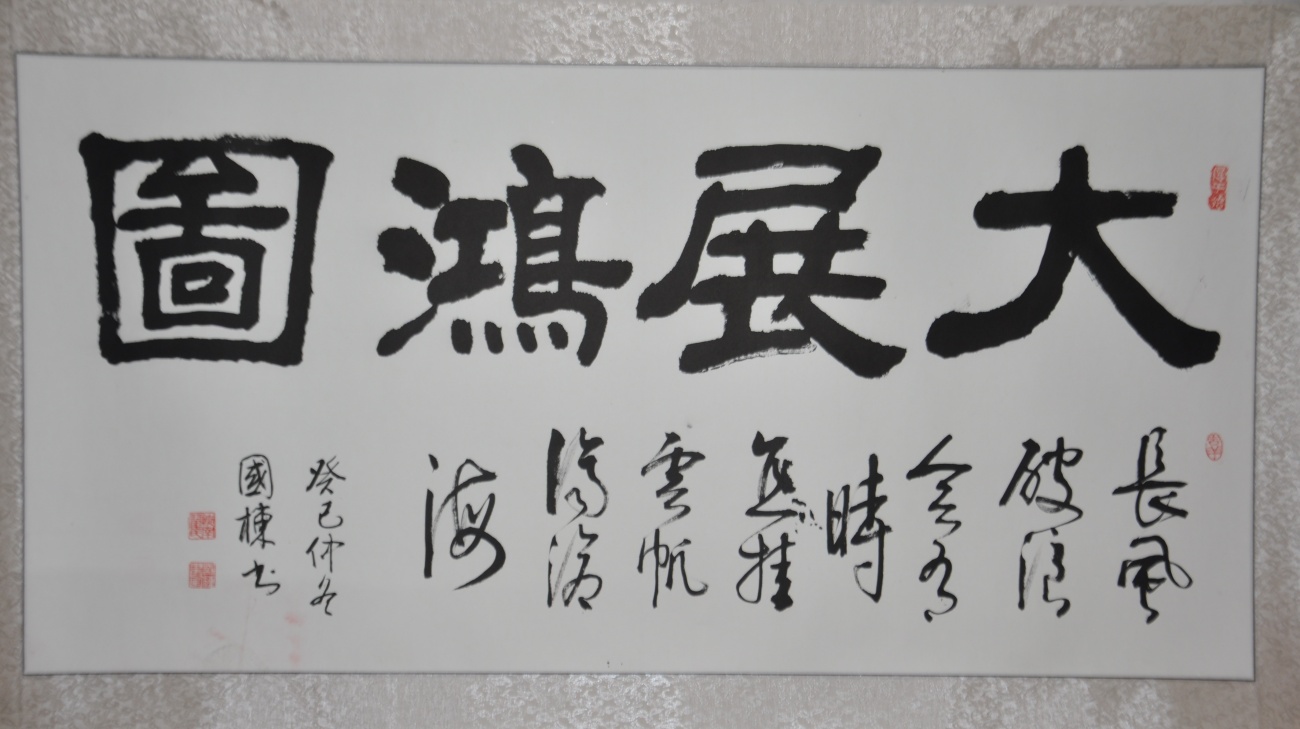 大展鴻圖
長風
破浪
會有
時
直挂
雲帆
濟滄
海
癸巳仲冬
國棟书